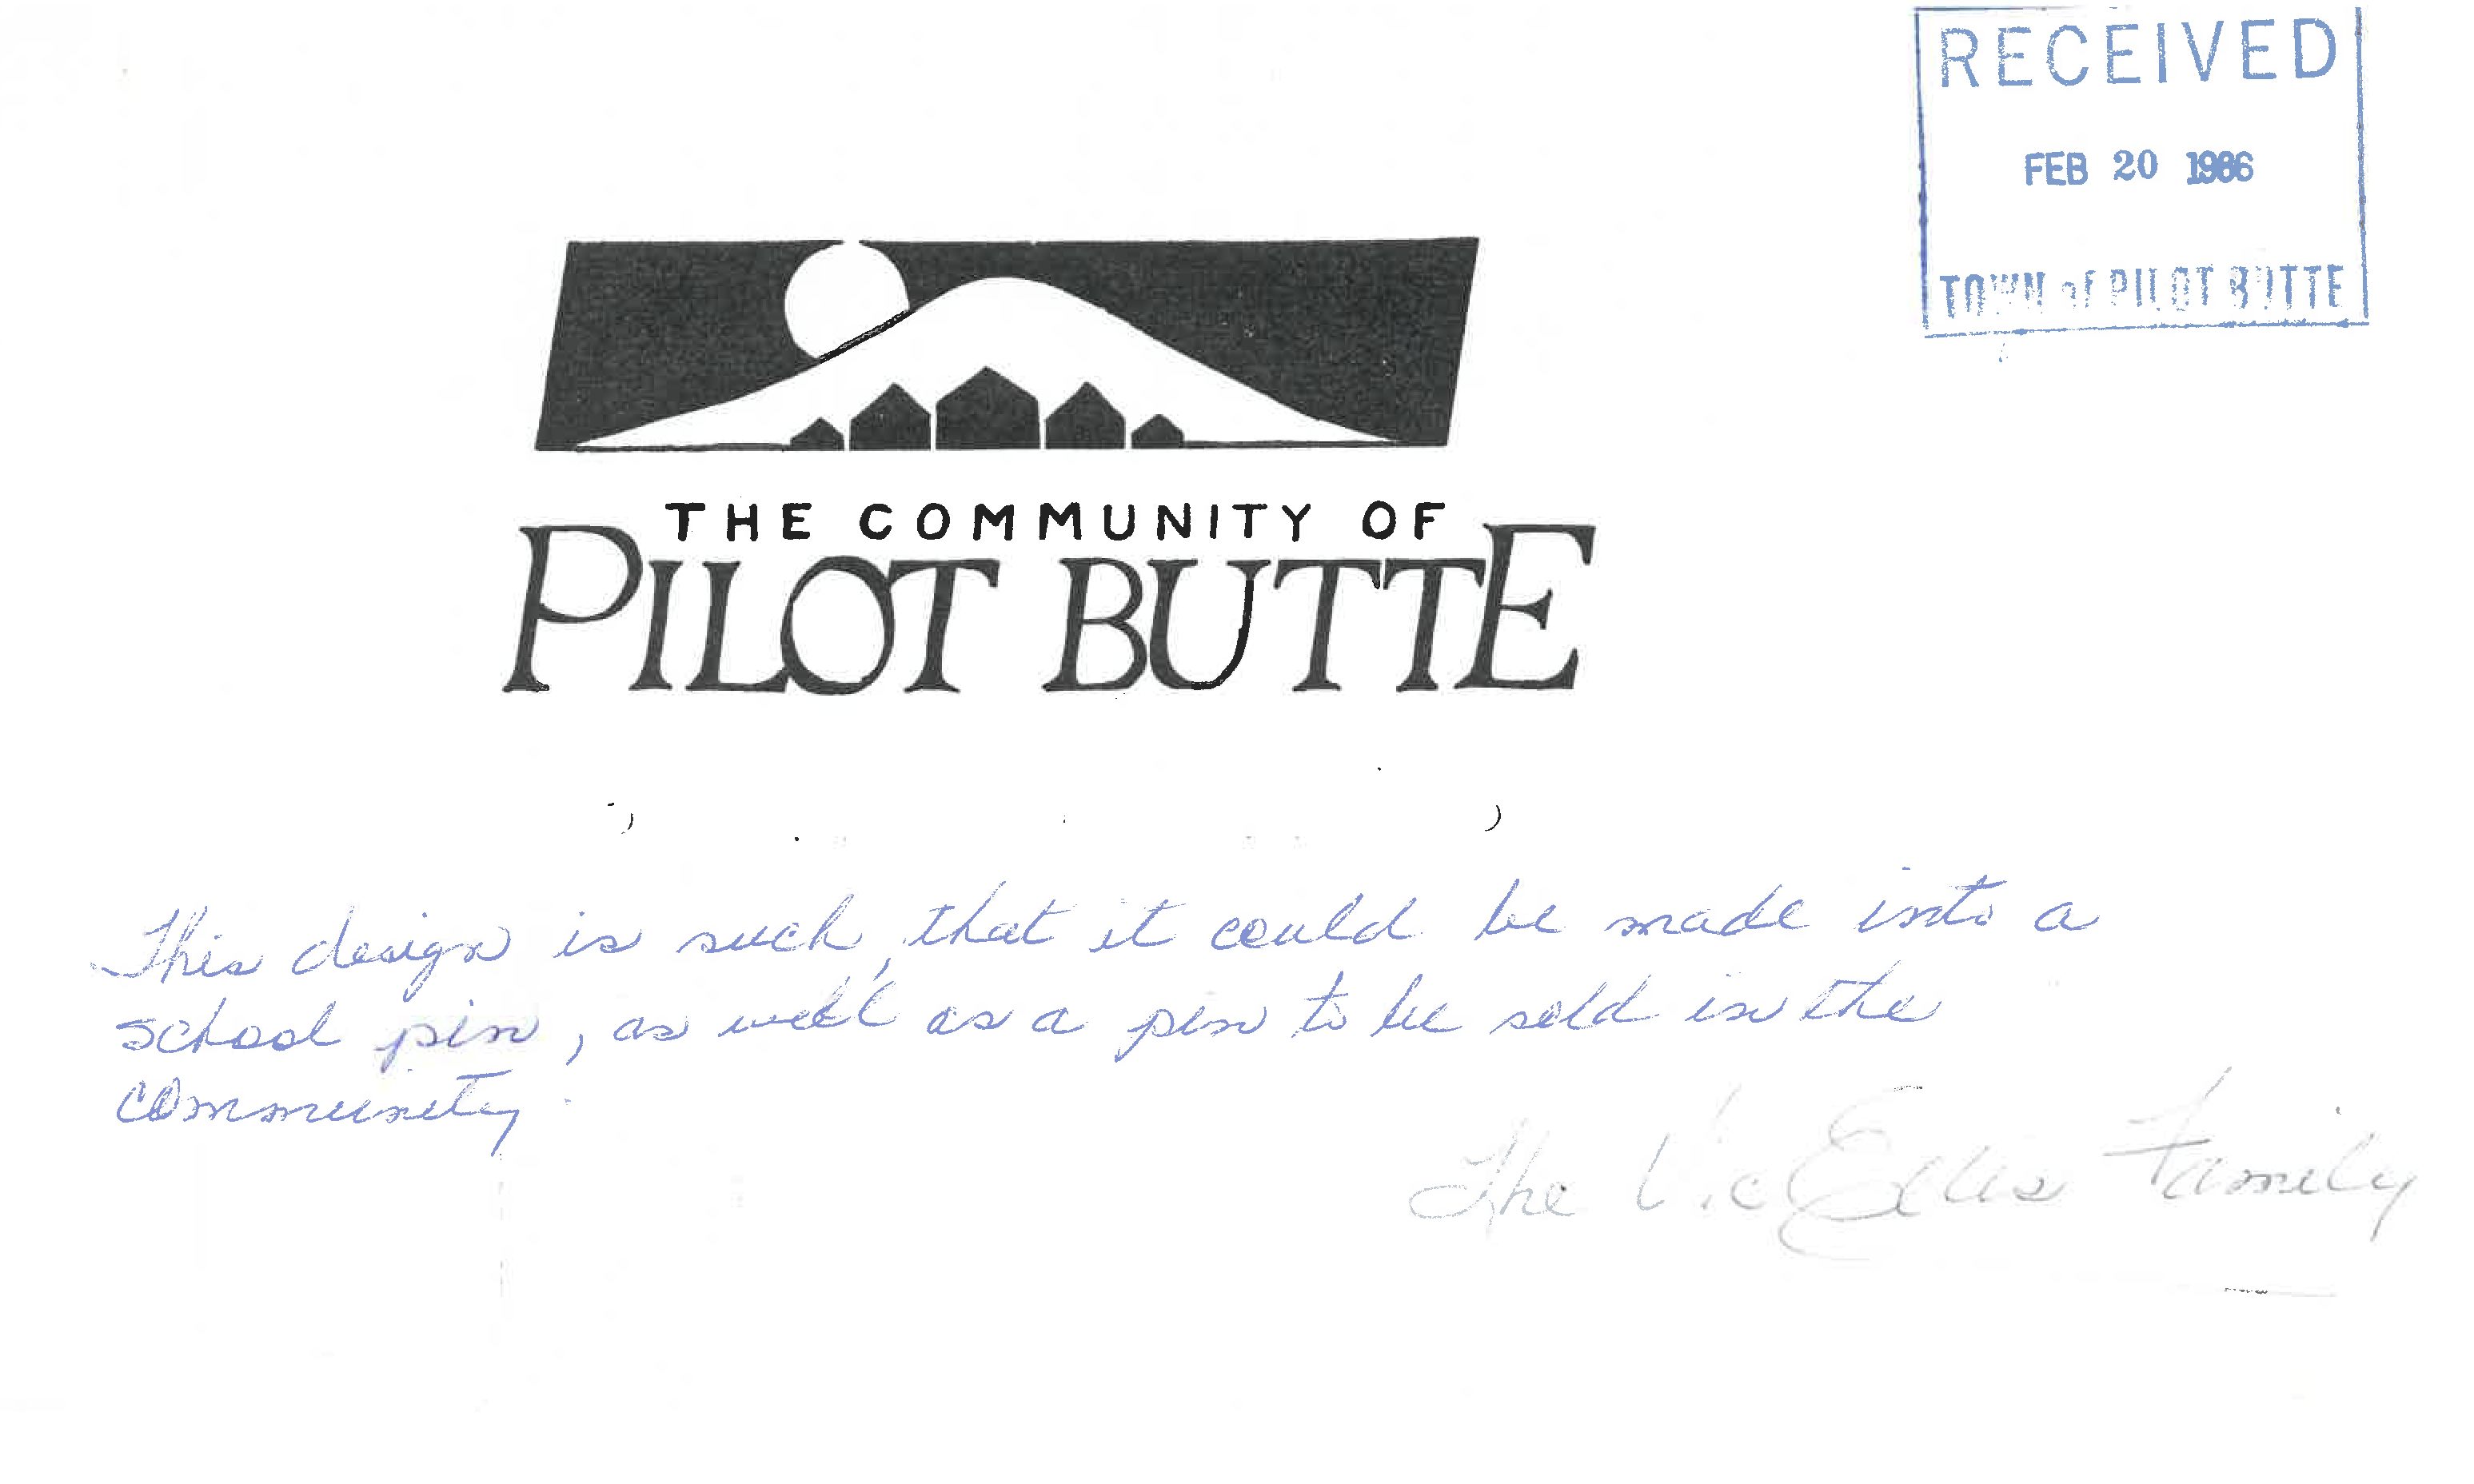 RECEIVED
FEB 20 1986
TOWN of PILOT BUTTE
THE COMMUNITY OF
PILOT BUTTE
This design is such, that it could be made into a
school pin, as well as a pin to be sold in the
community.
The Vic Ellis Family